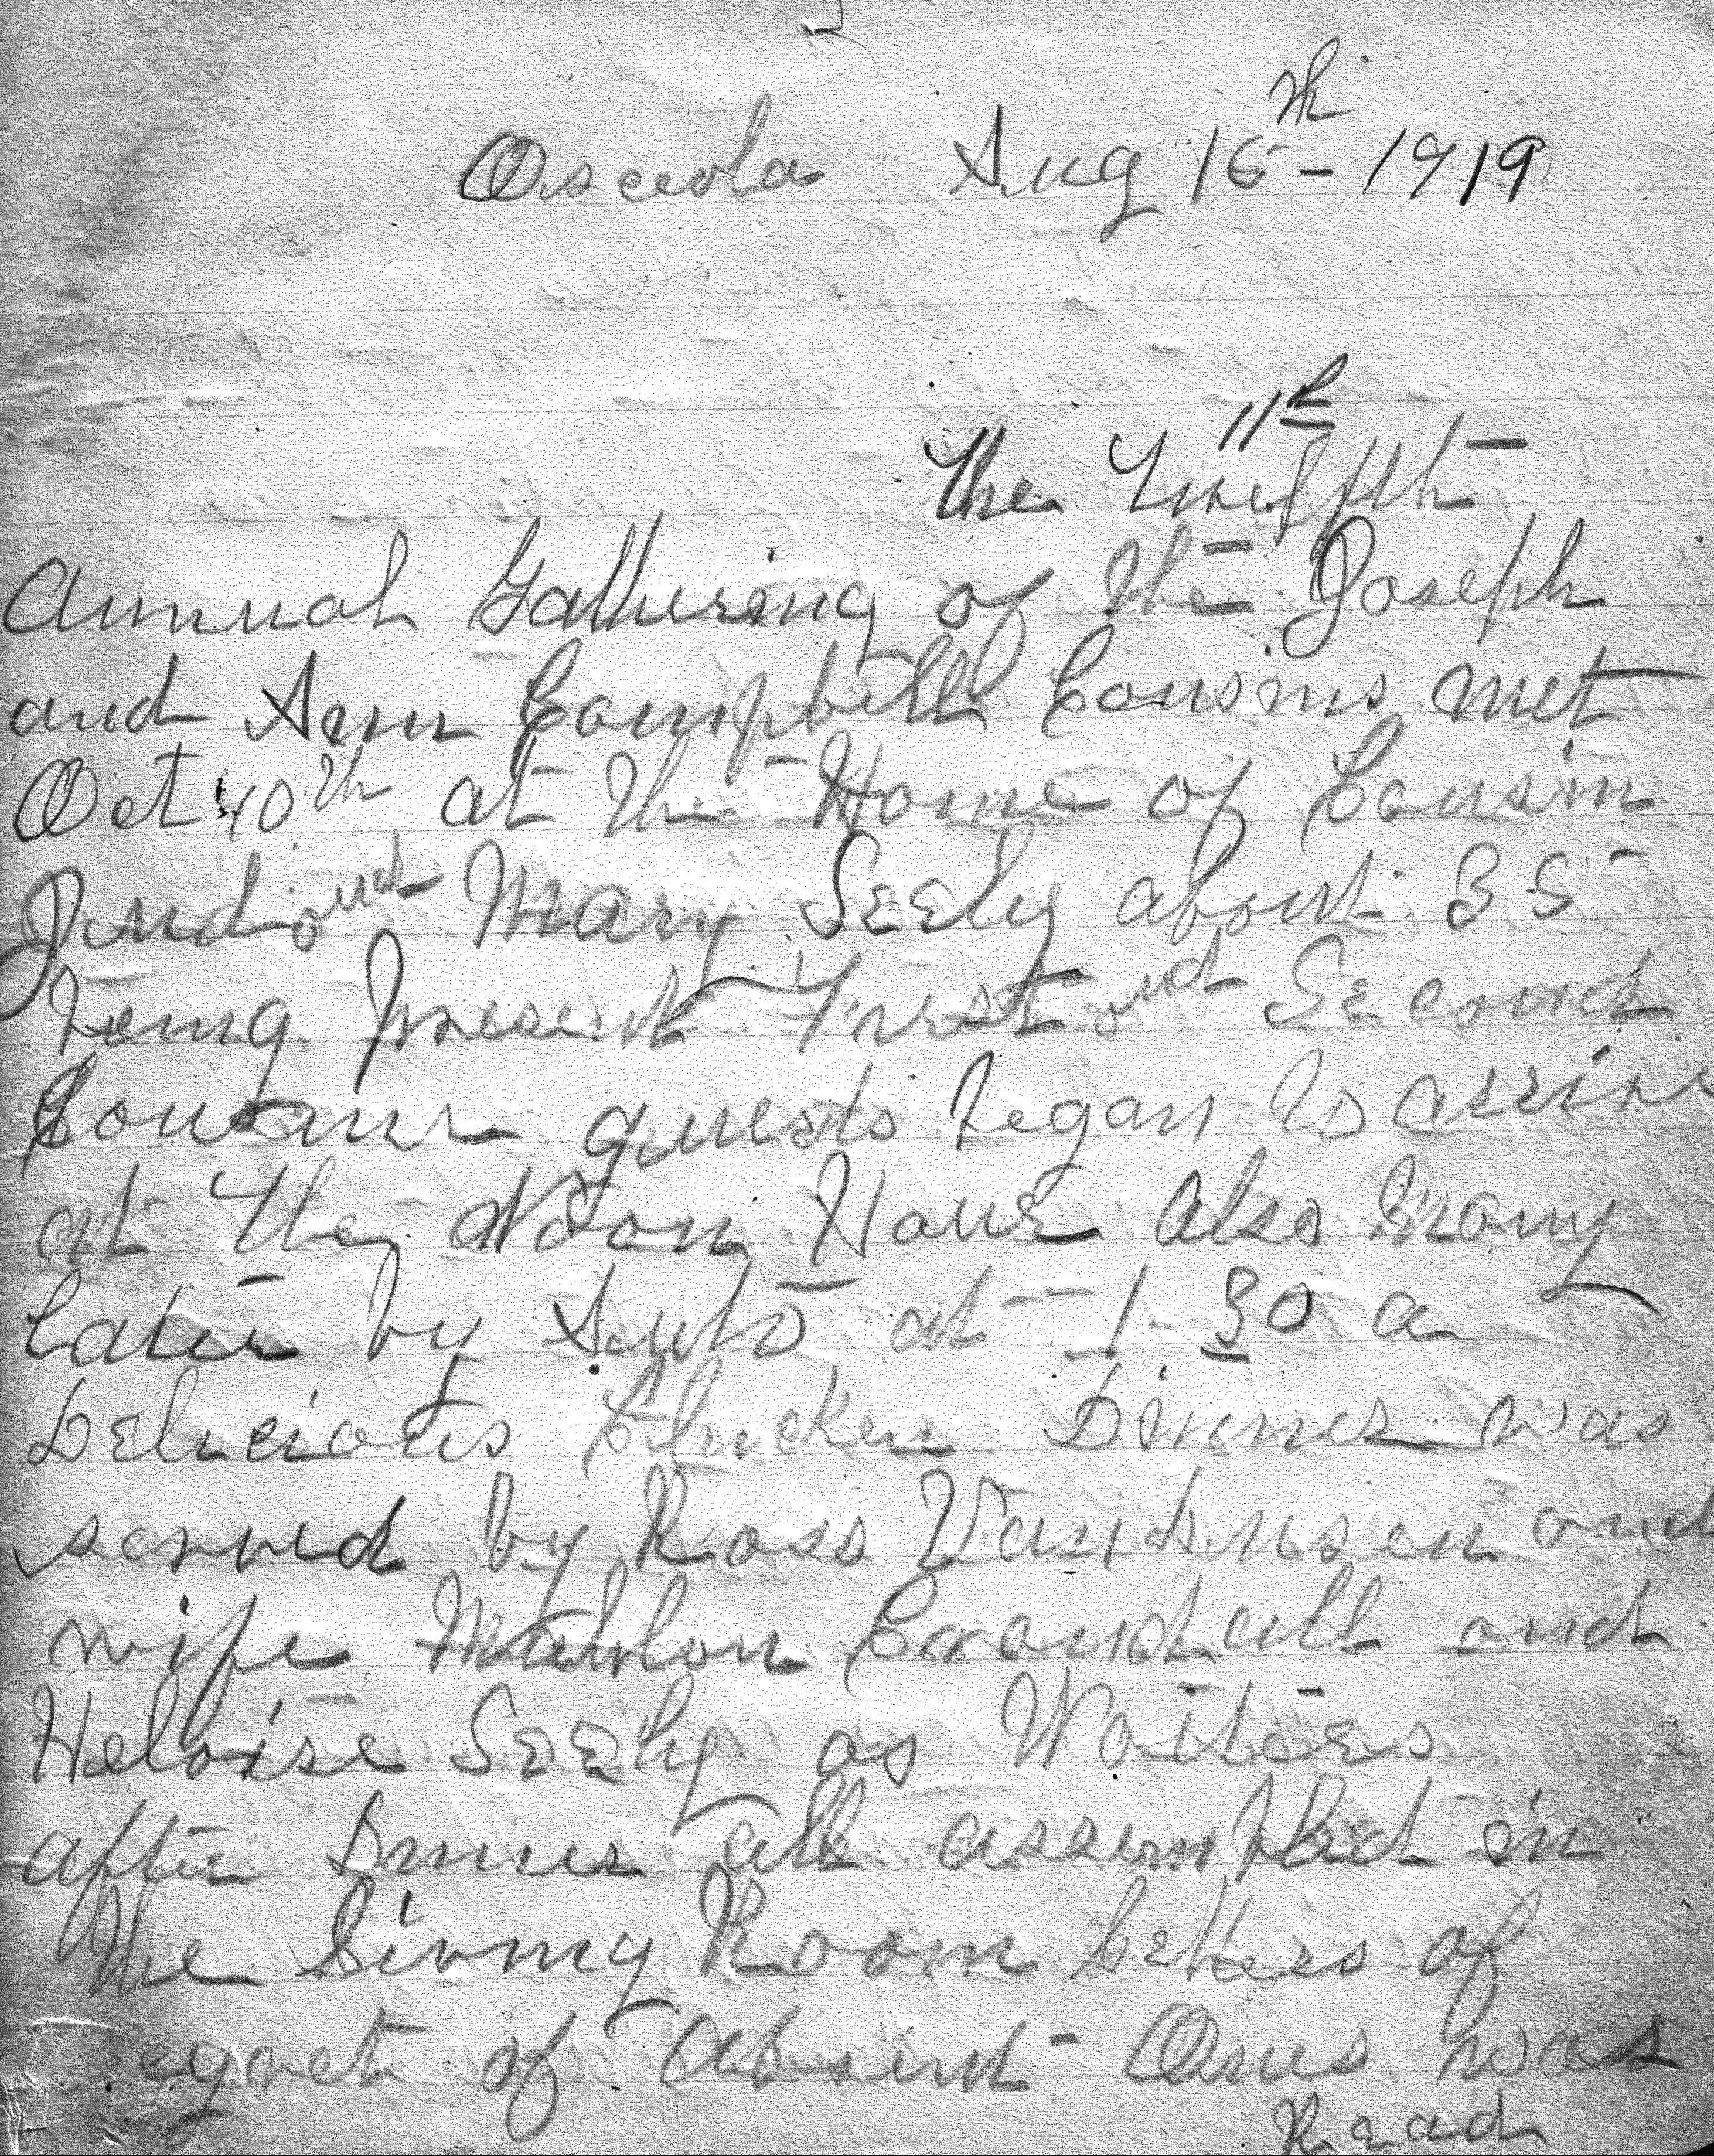 Osceola Aug 16th - 1919
11th
The Twelfth
Annual Gathering of the Joseph
and Ann Campbell Cousins met
Oct 10th at the Home of Cousin
Jud and Mary Seely about 35
being present First and Second
Cousins guests began to arrive
at the Noon Hour also many
later by Auto at 1-30 a
Delicious Chicken Dinner was
served by Ross VanDusen and
wife Mahlon Crandall and
Heloise Seely as Waiters
after Dinner all assembled in
the Living Room Letters of
regret of Absent Ones was
Read